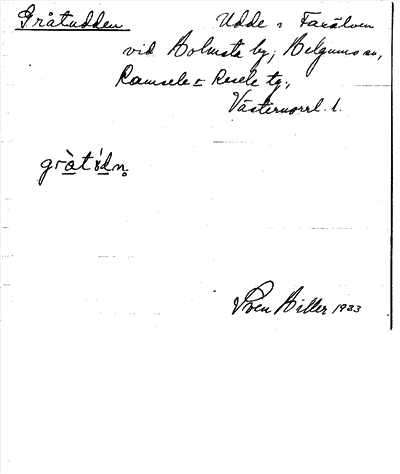 Gråtudden Udde i Faxälven
vid Bolmsta by, Helgums sn,
Ramsele o Resele tg.,
Västernorrl. l.
gràtúdn̥
Sven Hiller 1933